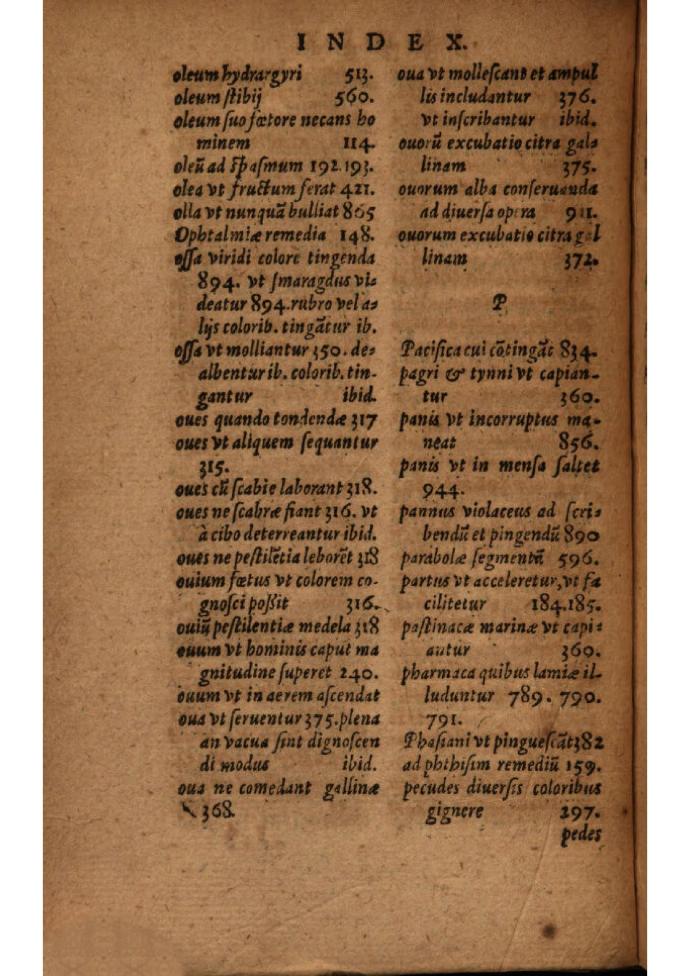 INDEX.
oleum hydrargyri 513.
oleum ſtibij 560.
oleum ſuo fœtore necans ho
minem 114.
oleū ad ſpaſmum 192.193.
olea vt fructum ferat 421.
olla vt nunquā bulliat 865
Ophtalmiæ remedia 148.
oſſa viridi colore tingenda
894. vt ſmaragdus vi-
deatur 894.rubro vel a-
lijs colorib. tingātur ib.
oſſa vt molliantur 350. de-
albentur ib. colorib. tin-
gantur ibid.
oues quando tondendæ 317
oues vt aliquem ſequantur
315.
oues cū ſcabie laborant 318.
oues ne ſcabræ fiant 316. vt
à cibo deterreantur ibid.
oues ne peſtilētia leborēt 318
ouium fœtus vt colorem co-
gnoſci poſſit 316.
ouiū peſtilentiæ medela 318
ouum vt hominis caput ma
gnitudine ſuperet 240.
ouum vt in aerem aſcendat
oua vt ſeruentur 375.plena
an vacua ſint dignoſcen
di modus ibid.
oua ne comedant gallinæ
368.
oua vt molleſcant et ampul
lis includantur 376.
vt inſcribantur ibid.
ouorū excubatio citra gal-
linam 375.
ouorum alba conſeruanda
ad diuerſa opera 911.
ouorum excubatio citra gal
linam 372.
P
Pacifica cui cōtingāt 834.
pagri & tynni vt capian-
tur 360.
panis vt incorruptus ma-
neat 856.
panis vt in menſa ſaltet
944.
pannus violaceus ad ſcri-
bendū et pingendū 890
parabolæ ſegmentū 596.
partus vt acceleretur, vt fa
cilitetur 184.185.
paſtinacæ marinæ vt capi-
antur 360.
pharmaca quibus lamiæ il-
luduntur 789. 790.
791.
Phaſiani vt pingueſcāt 382
ad phthiſim remediū 159.
pecudes diuerſis coloribus
gignere 297.
pedes